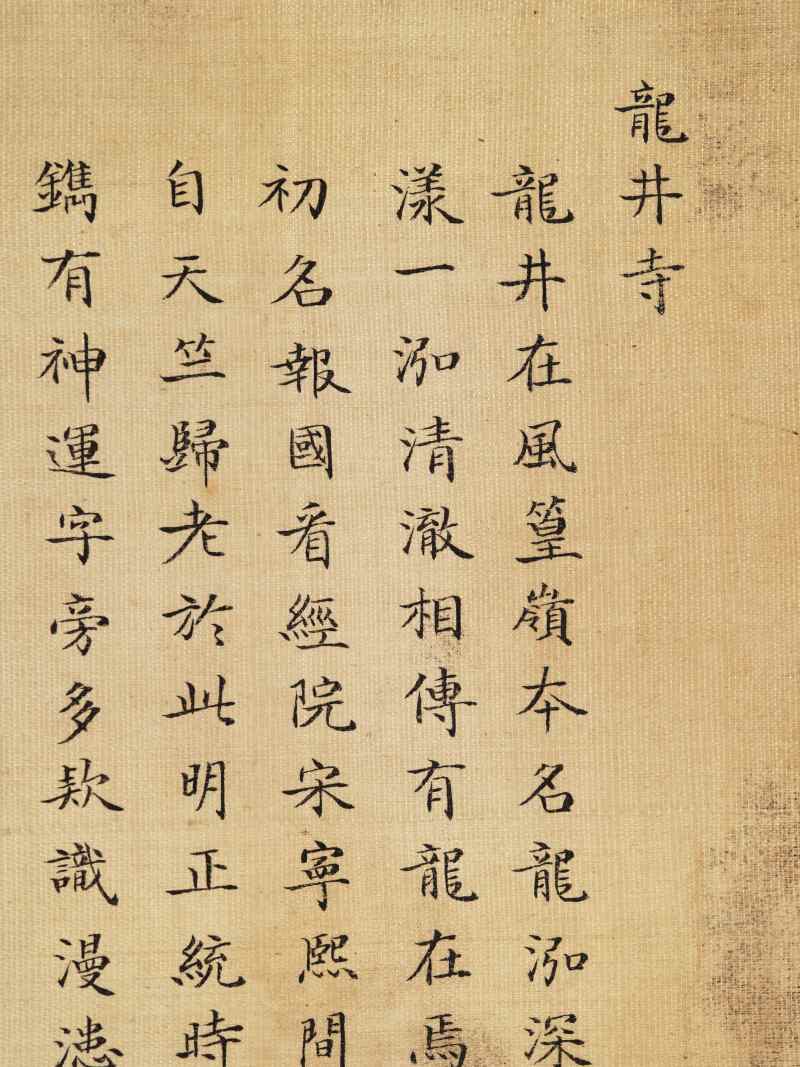 龍井寺
龍井在風篁嶺本名龍泓深
漾一泓清澈相傳有龍在焉
初名報國看經院宋寧熙間
自天竺歸老於此明正統時
鐫有神運字旁多欵識漫漶